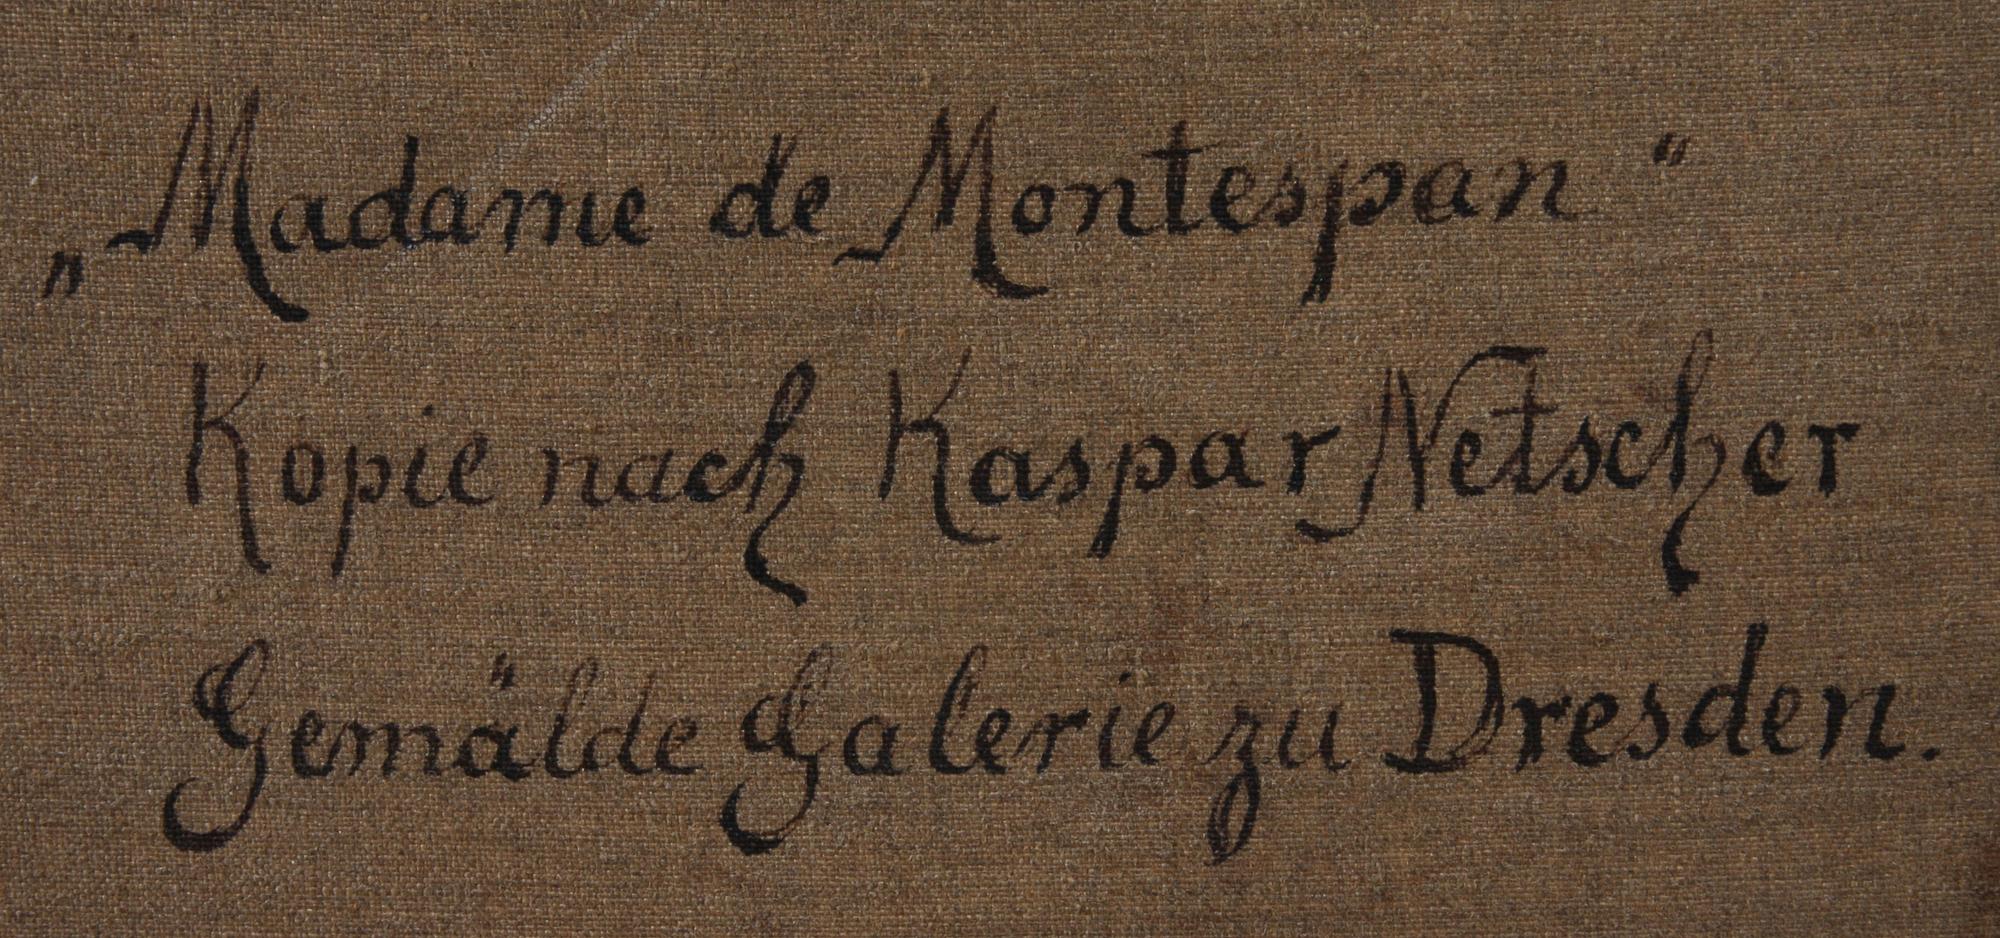 „Madame de Montespan“
Kopie nach Kaspar Netscher
Gemälde Galerie zu Dresden.